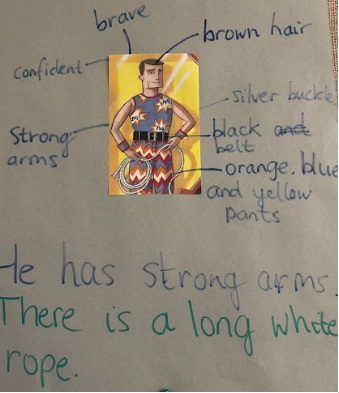 brave
brown hair
confident
silver buckle
strong
arms
black and
belt
orange, blue
and yellow
pants
He has strong arms.
There is a long white
rope.